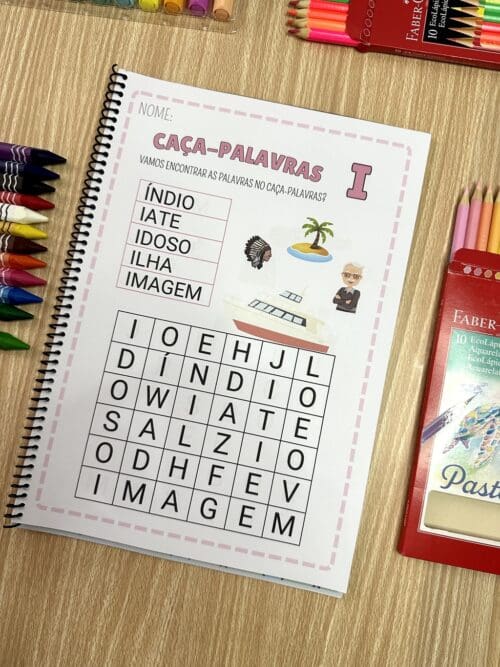 NOME:
CAÇA-PALAVRAS I
VAMOS ENCONTRAR AS PALAVRAS NO CAÇA-PALAVRAS?
ÍNDIO
IATE
IDOSO
ILHA
IMAGEM
I O E H J L
D Í N D I O
O W I A T E
S A L Z I O
O D H F E V
I M A G E M
FABER-C
10 EcoLápi
FABER-
10 EcoLápi
Past